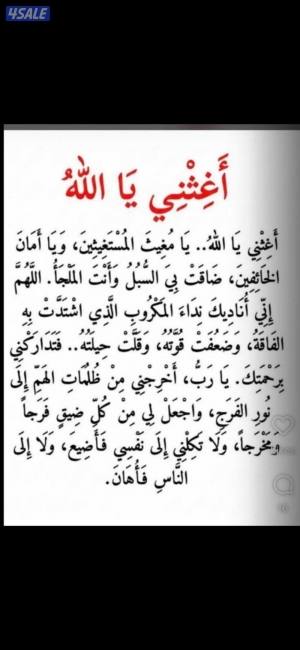 4SALE
أَغِثْنِي يَا اللهُ
أَغِثْنِي يَا اللهُ.. يَا مُغِيثَ المُسْتَغِيثِينَ، وَيَا أَمَانَ
الخَائِفِينَ، ضَاقَتْ بِيَ السُّبُلُ وَأَنْتَ المَلْجَأُ. اللَّهُمَّ
إِنِّي أُنَادِيكَ نِدَاءَ المَكْرُوبِ الَّذِي اشْتَدَّتْ بِهِ
الفَاقَةُ، وَضَعُفَتْ قُوَّتُهُ، وَقَلَّتْ حِيلَتُهُ.. فَتَدَارَكْنِي
بِرَحْمَتِكَ. يَا رَبُّ، أَخْرِجْنِي مِنْ ظُلُمَاتِ الهَمِّ إِلَى
نُورِ الفَرَجِ، وَاجْعَلْ لِي مِنْ كُلِّ ضِيقٍ فَرَجاً
وَمَخْرَجاً، وَلَا تَكِلْنِي إِلَى نَفْسِي فَأَضِيعَ، وَلَا إِلَى
النَّاسِ فَأُهَانَ.